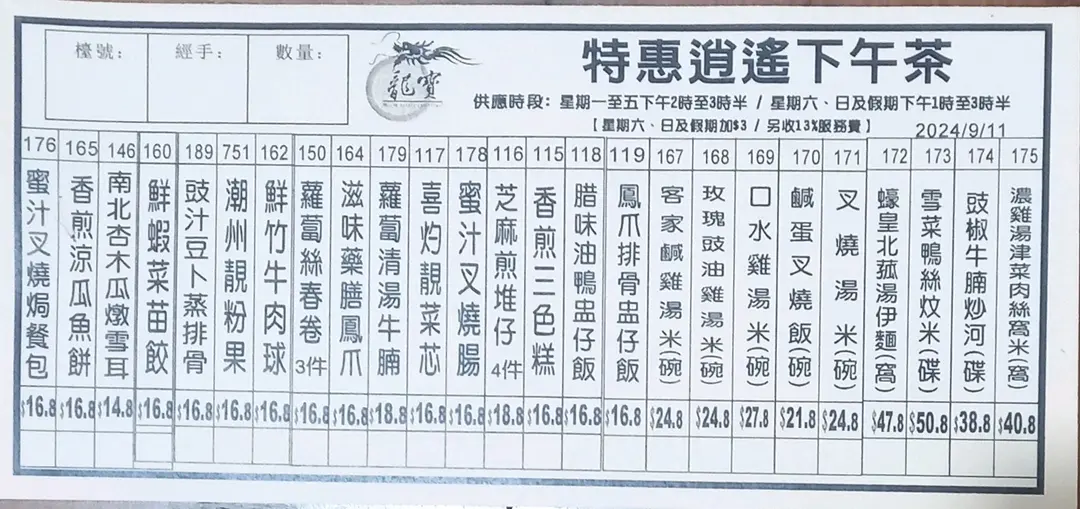 檯號：
經手：
數量：
龍寶
特惠逍遙下午茶
供應時段：星期一至五下午2時至3時半 / 星期六、日及假期下午1時至3時半
【星期六、日及假期加$3 / 另收13%服務費】
2024/9/11
176 蜜汁叉燒焗餐包 $16.8
165 香煎涼瓜魚餅 $16.8
146 南北杏木瓜燉雪耳 $14.8
160 鮮蝦菜苗餃 $16.8
189 豉汁豆卜蒸排骨 $16.8
751 潮州靚粉果 $16.8
162 鮮竹牛肉球 $16.8
150 蘿蔔絲春卷 3件 $16.8
164 滋味藥膳鳳爪 $16.8
179 蘿蔔清湯牛腩 $18.8
117 喜灼靚菜芯 $16.8
178 蜜汁叉燒腸 $16.8
116 芝麻煎堆仔 4件 $18.8
115 香煎三色糕 $16.8
118 腊味油鴨盅仔飯 $16.8
119 鳳爪排骨盅仔飯 $16.8
167 客家鹹雞湯米(碗) $24.8
168 玫瑰豉油雞湯米(碗) $24.8
169 口水雞湯米(碗) $27.8
170 鹹蛋叉燒飯(碗) $21.8
171 叉燒湯米(碗) $24.8
172 蠔皇北菰湯伊麵(窩) $47.8
173 雪菜鴨絲炆米(碟) $50.8
174 豉椒牛腩炒河(碟) $38.8
175 濃雞湯津菜肉絲窩米(窩) $40.8